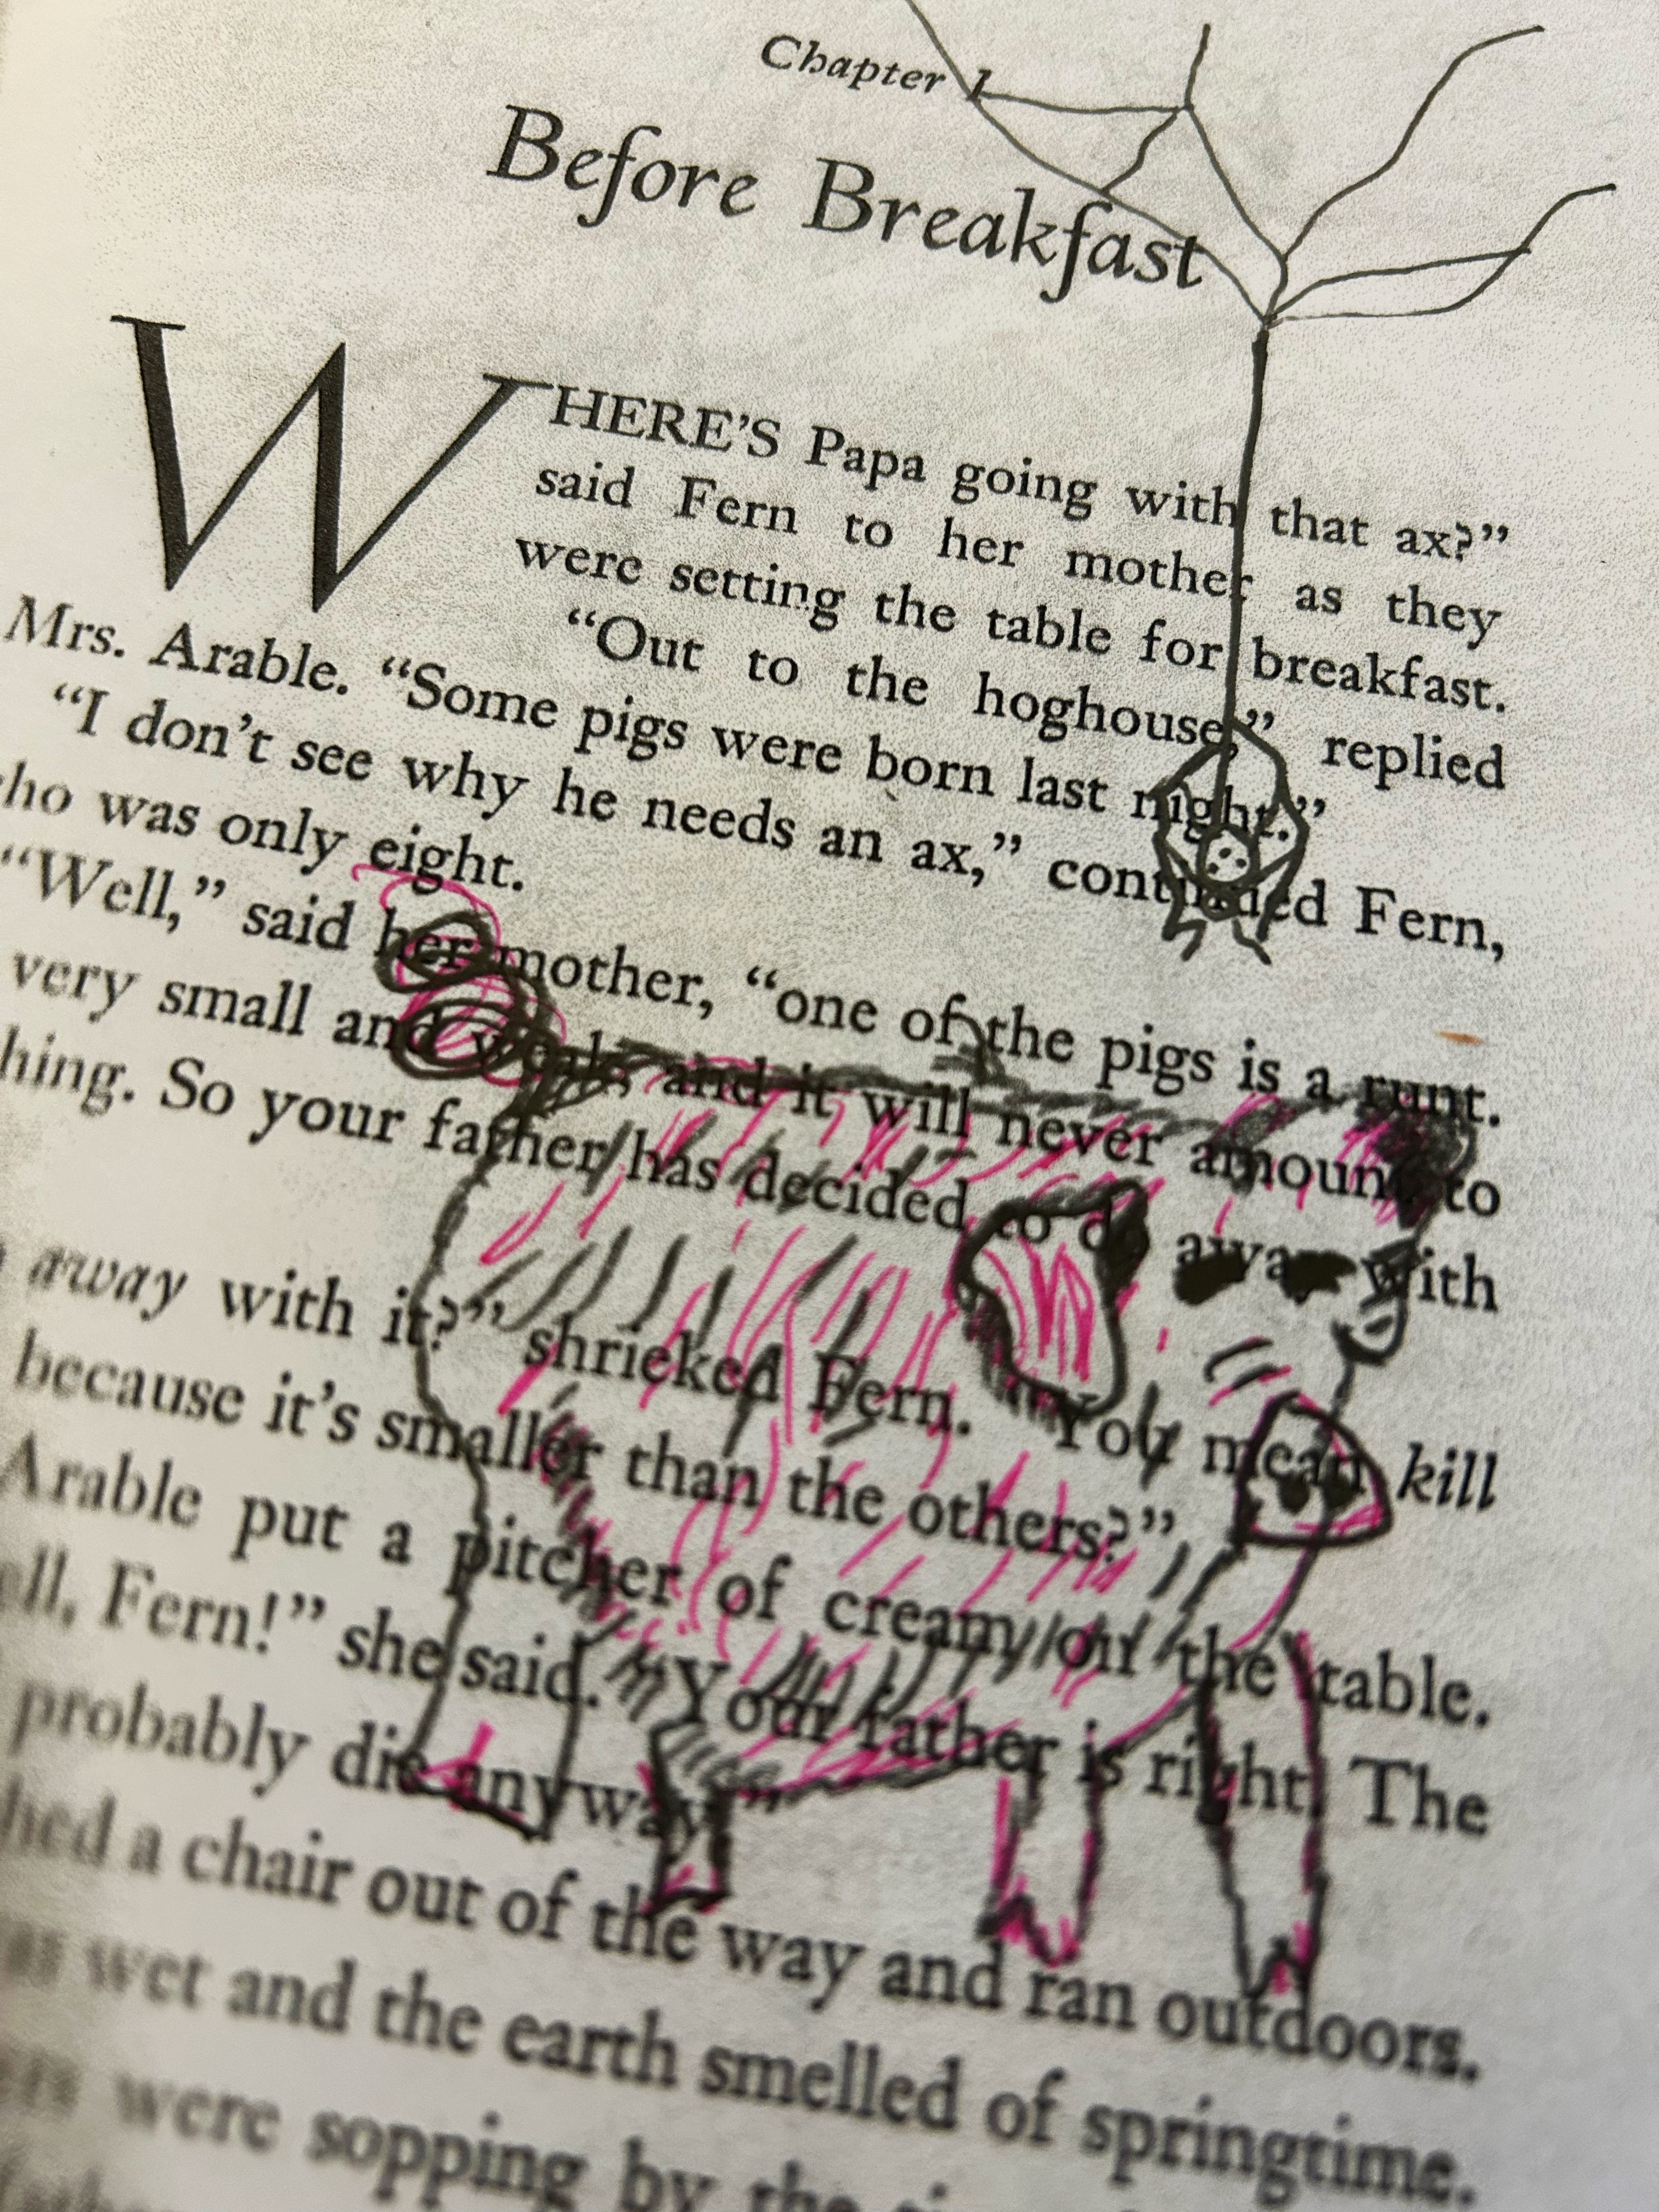 Chapter 1
Before Breakfast
WHERE'S Papa going with that ax?"
said Fern to her mother as they
were setting the table for breakfast.
"Out to the hoghouse," replied
Mrs. Arable. "Some pigs were born last night."
"I don't see why he needs an ax," continued Fern,
who was only eight.
"Well," said her mother, "one of the pigs is a runt.
very small and weak, and it will never amount to
So your father has decided to do away with
away with it?" shrieked Fern. "You mean kill
because it's smaller than the others?"
Arable put a pitcher of cream on the table.
Fern!" she said. "Your father is right. The
probably die anyway."
a chair out of the way and ran outdoors.
wet and the earth smelled of springtime.
were sopping by the